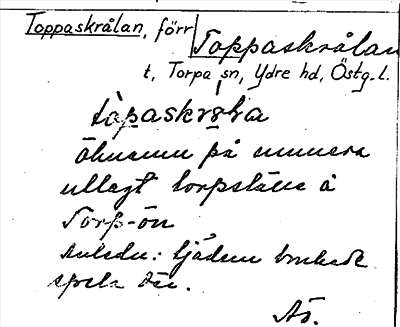 Toppaskrålan, förr Toppaskrålan
t, Torpa sn, Ydre hd, Östg.l.
tòpaskrɔla
Öknamn på numera
utlagt torpställe å
Torp-ön
Anledn.: tjädern brukade
spela där.
AÖ.